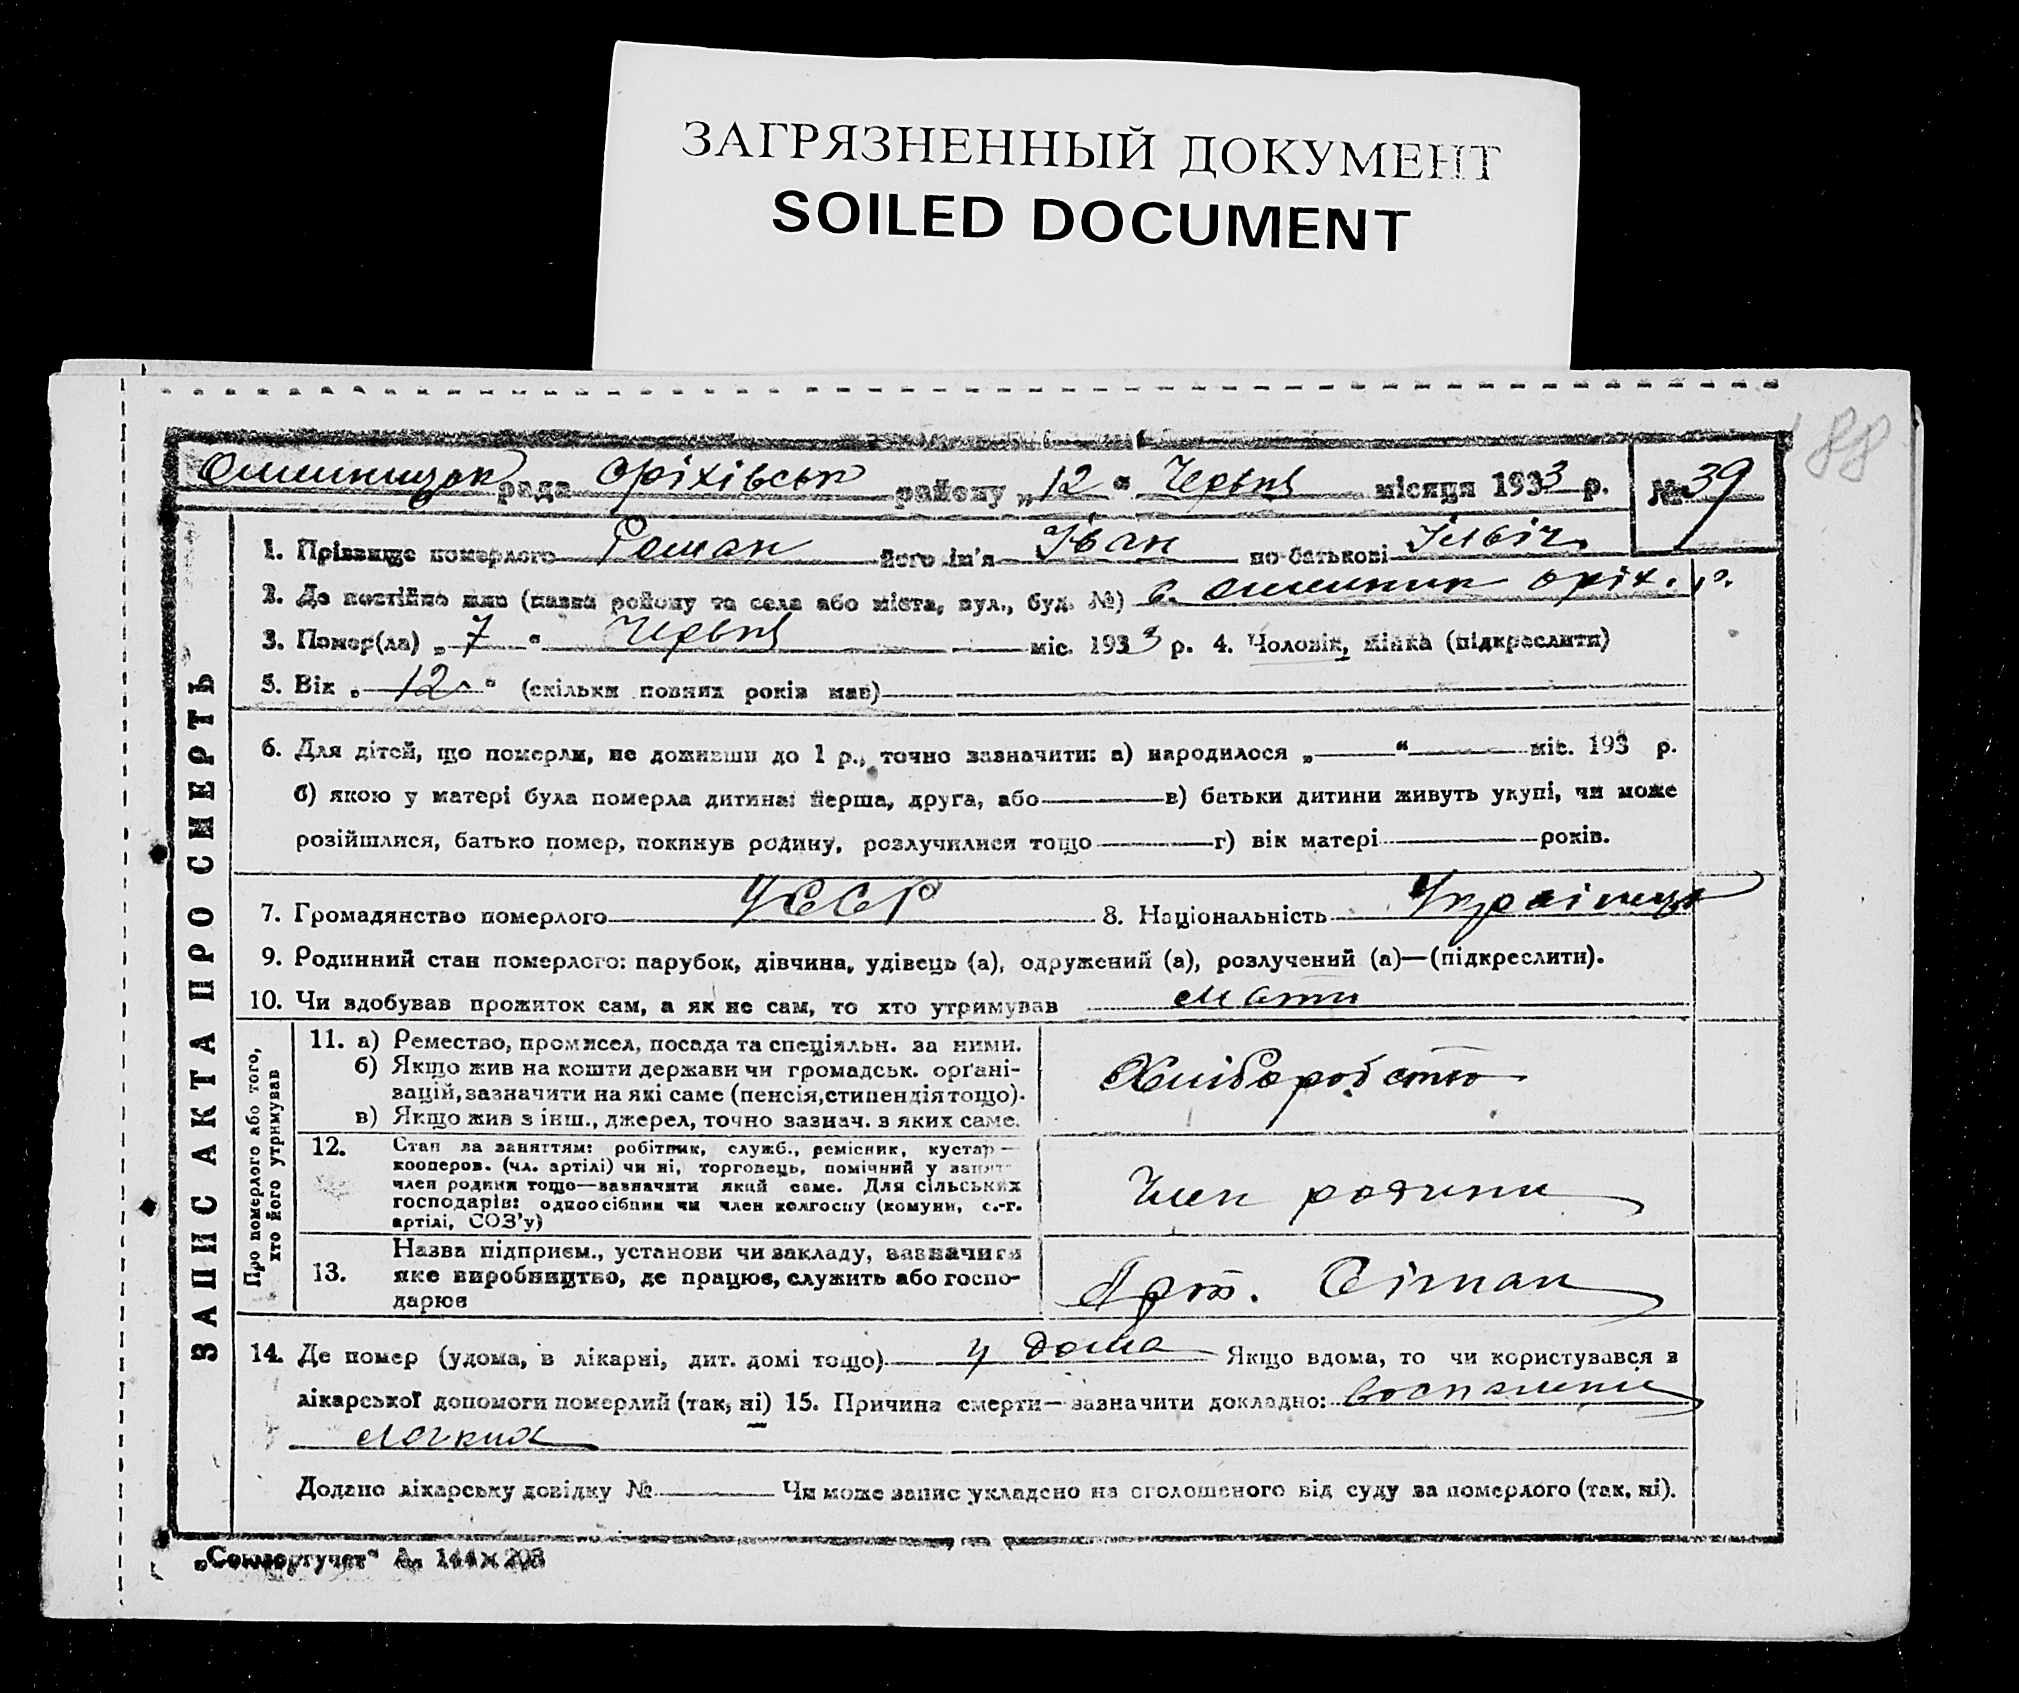 ЗАГРЯЗНЕННЫЙ ДОКУМЕНТ
SOILED DOCUMENT
188
рада Оріхівськ району „12“ Червня місяця 1933 р. № 39
ЗАПИС АКТА ПРО СМЕРТЬ
1. Прізвище померлого Роман його ім'я Іван по-батькові Ілвіч
2. Де постійно жив (назва району та села або міста, вул., буд. №) с. Омельник Оріх. р.
3. Помер(ла) „7“ Червня міс. 1933 р. 4. Чоловік, жінка (підкреслити)
5. Вік „12“ (скільки повних років мав)
6. Для дітей, що померли, не доживши до 1 р., точно зазначити: а) народилося „ “ міс. 193 р.
б) якою у матері була померла дитина: перша, друга, або в) батьки дитини живуть укупі, чи може
розійшлися, батько помер, покинув родину, розлучилися тощо г) вік матері років.
7. Громадянство померлого УССР 8. Національність Українець
9. Родинний стан померлого: парубок, дівчина, удівець (а), одружений (а), розлучений (а)—(підкреслити).
10. Чи здобував прожиток сам, а як не сам, то хто утримував мати
Про померлого або того,
хто його утримував
11. а) Ремество, промисел, посада та спеціяльн. за ними.
б) Якщо жив на кошти держави чи громадськ. орґані-
зацій, зазначити на які саме (пенсія, стипендія тощо).
в) Якщо жив з інш., джерел, точно зазнач. з яких саме.
Хліборобство
12. Стан за заняттям: робітник, служб., ремісник, кустар—
кооперов. (чл. артілі) чи ні, торговець, помічний у занят
член родини тощо—зазначити який саме. Для сільських
господарів: одноосібник чи член колгоспу (комуни, с.-г.
артілі, СОЗ'у)
Член родини
13. Назва підприєм., установи чи закладу, зазначити
яке виробництво, де працює, служить або госпо-
дарює
Арт. Сітнак
14. Де помер (удома, в лікарні, дит. домі тощо) у дома Якщо вдома, то чи користувався з
лікарської допомоги померлий (так, ні) 15. Причина смерти—зазначити докладно: воспаление
легких
Додано лікарську довідку № Чи може запис укладено на оголошеного від суду за померлого (так, ні).
„Союзоргучет“ А. 144×203